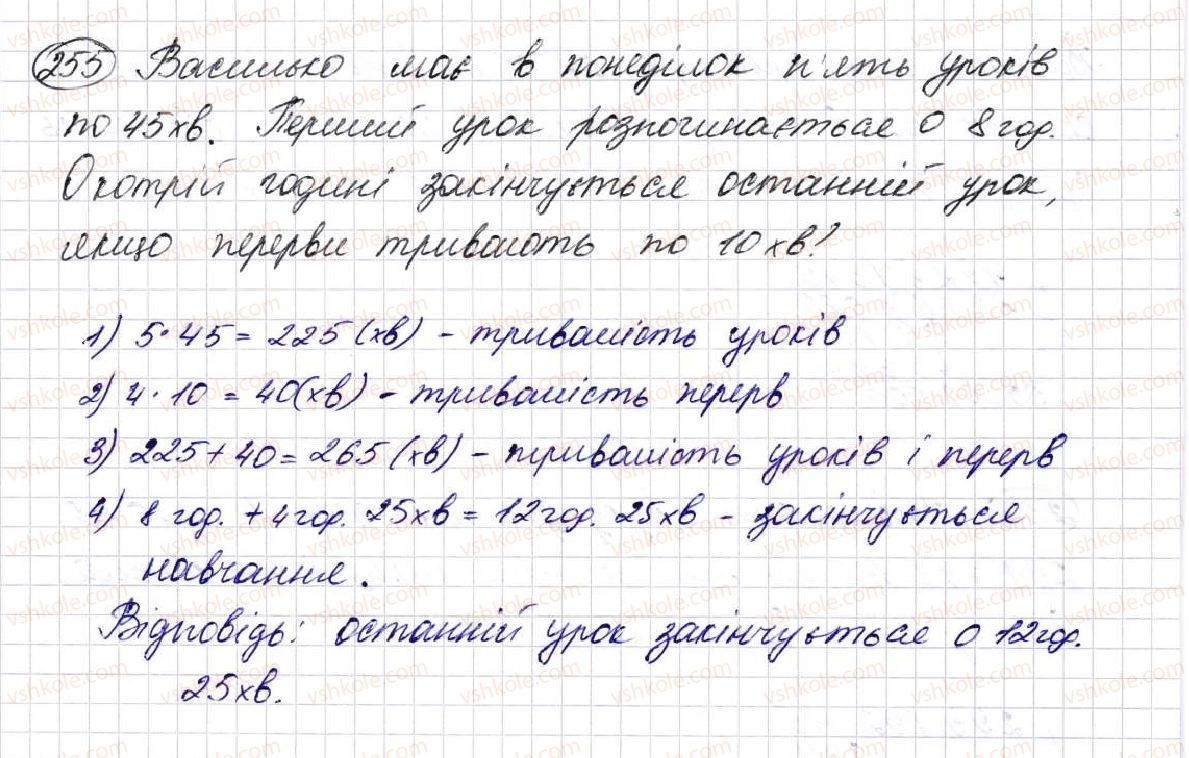 255 Василько має в понеділок п'ять уроків
по 45 хв. Перший урок розпочинається о 8 год.
О котрій годині закінчується останній урок,
якщо перерви тривають по 10 хв?
1) 5·45 = 225 (хв) - тривалість уроків
2) 4·10 = 40 (хв) - тривалість перерв
3) 225 + 40 = 265 (хв) - тривалість уроків і перерв
4) 8 год. + 4 год. 25 хв = 12 год. 25 хв - закінчується
навчання.
Відповідь: останній урок закінчується о 12 год.
25 хв.